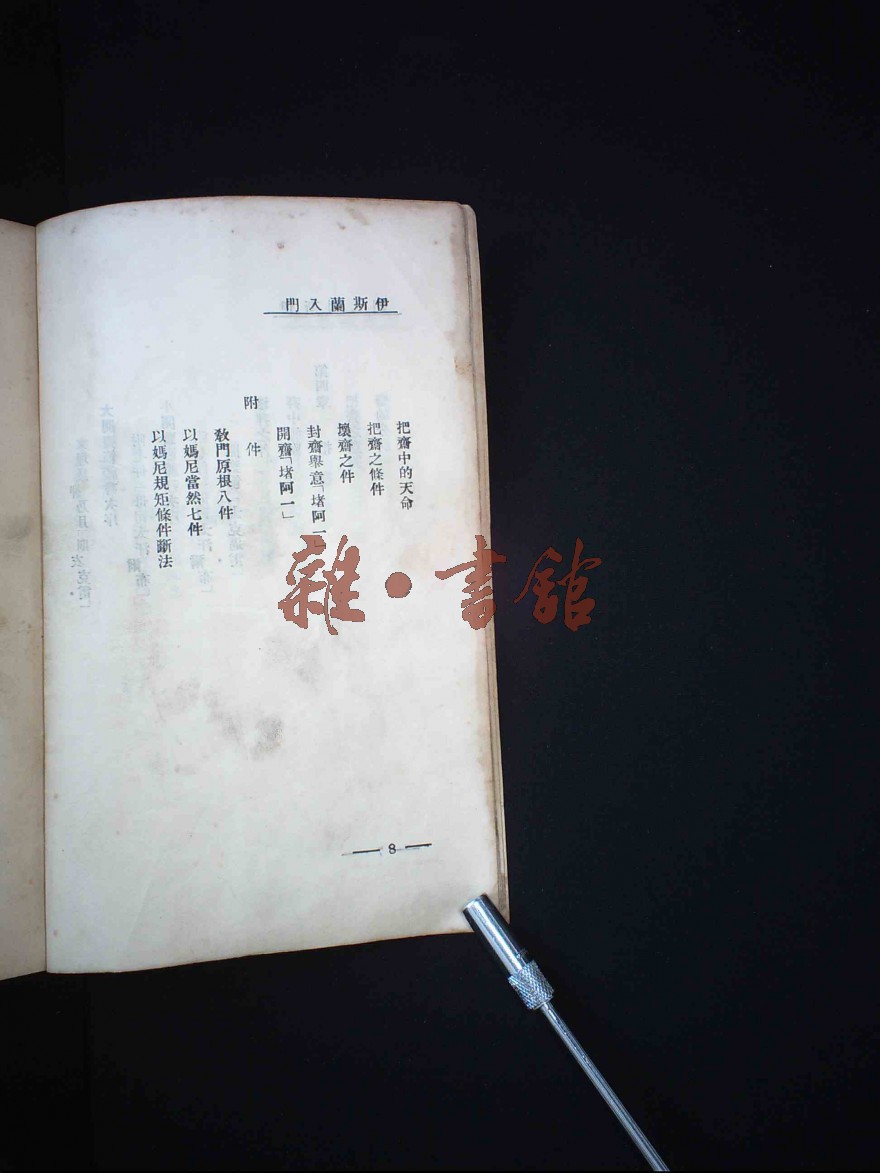 伊斯蘭入門
把齋中的天命
把齋之條件
壞齋之件
封齋舉意「堵阿一」
開齋「堵阿一」
附件
敎門原根八件
以媽尼當然七件
以媽尼規矩條件斷法
雜·書舘
— 8 —